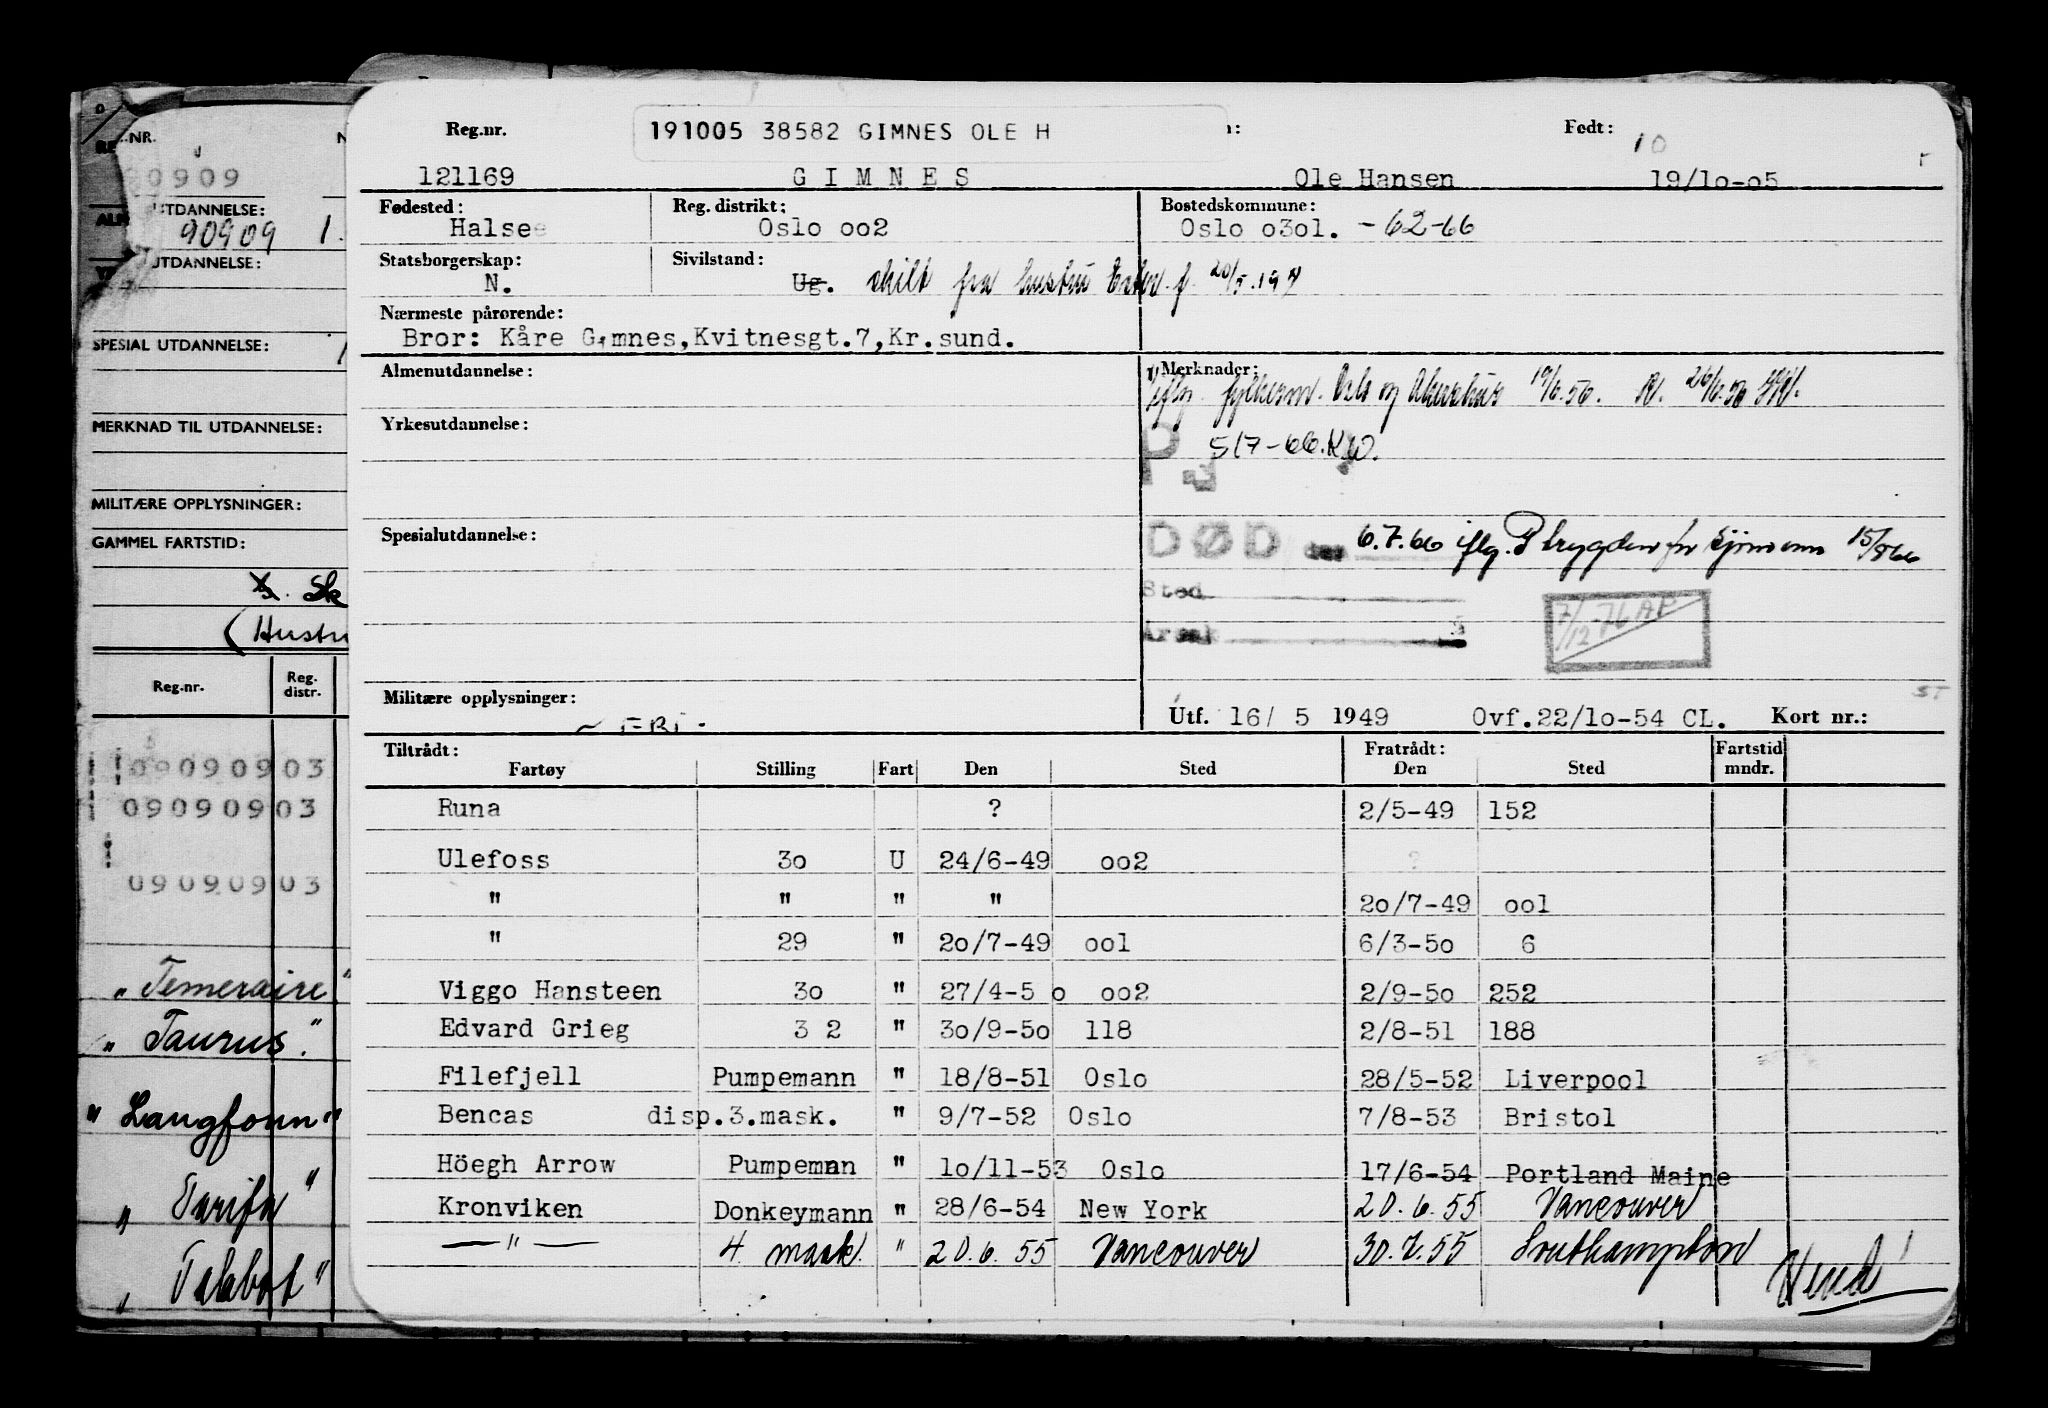 191005 38582 GIMNES OLE H
Reg.nr. Født:
121169 GIMNES Ole Hansen 19/lo-o5
Fødested: Reg. distrikt: Bostedskommune:
Halse Oslo oo2 Oslo o3ol. -62-66
Statsborgerskap: Sivilstand:
N. Ug. skilt fra hustru
Nærmeste pårørende:
Bror: Kåre Gimnes,Kvitnesgt.7,Kr.sund.
Almenutdannelse: Merknader:
iflg. fylkesm. Oslo og Akershus 19/6.56. 26/6.56
Yrkesutdannelse:
5/7-66.KW.
Spesialutdannelse:
DØD den 6.7.66 iflg. P trygden for Sjømenn 15/8 66
Sted
Årsak
7/12-76 AP
Militære opplysninger:
Utf. 16/ 5 1949 Ovf.22/lo-54 CL. Kort nr.:
Tiltrådt: Fratrådt: Fartstid
Fartøy Stilling Fart Den Sted Den Sted mndr.
Runa ? 2/5-49 152
Ulefoss 3o U 24/6-49 oo2 ?
" " " " 2o/7-49 ool
" 29 " 2o/7-49 ool 6/3-5o 6
Viggo Hansteen 3o " 27/4-5 o oo2 2/9-5o 252
Edvard Grieg 3 2 " 3o/9-5o 118 2/8-51 188
Filefjell Pumpemann " 18/8-51 Oslo 28/5-52 Liverpool
Bencas disp.3.mask. " 9/7-52 Oslo 7/8-53 Bristol
Höegh Arrow Pumpemnn " lo/11-53 Oslo 17/6-54 Portland Maine
Kronviken Donkeymann " 28/6-54 New York 20.6.55 Vancouver
—"— 4 mask. " 20.6.55 Vancouver 30.7.55 Southampton
Vend!
NR.
90909
UTDANNELSE:
90909 1.
UTDANNELSE:
SPESIAL UTDANNELSE:
MERKNAD TIL UTDANNELSE:
MILITÆRE OPPLYSNINGER:
GAMMEL FARTSTID:
Sk
(Hustru
Reg.nr. Reg. distr.
09090903
09090903
09090903
"Temeraire"
"Taurus."
"Langfonn"
"Tarifa"
"Talabot"